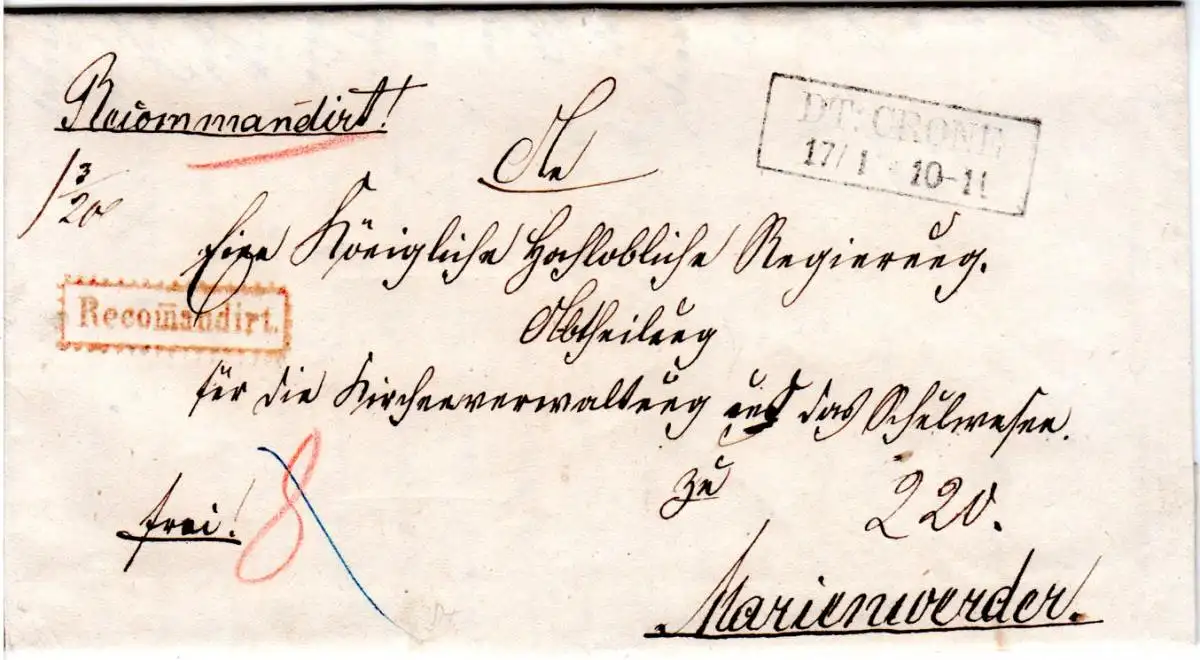 Recommandirt!
DT: CRONE
17/1 10-11
An
13/20
Eine Königliche Hochlobliche Regierung.
Recom̅andirt.
Abtheilung
für die Kirchenverwaltung und das Schulwesen.
zu
220.
frei!
8
Marienwerder.